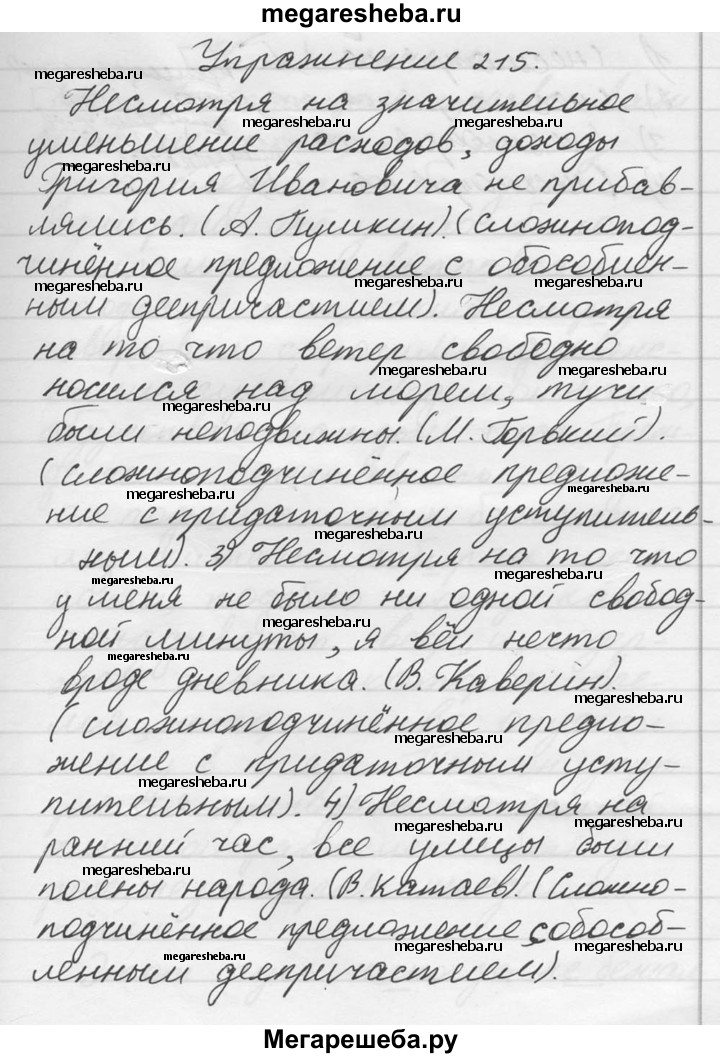 megaresheba.ru
Упражнение 215.
Несмотря на значительное
уменьшение расходов, доходы
Григория Ивановича не прибав-
лялись. (А. Пушкин). (сложнопод-
чинённое предложение с обособлен-
ным деепричастием). Несмотря
на то что ветер свободно
носился над морем, тучи
были неподвижны. (М. Горький).
(сложноподчинённое предложе-
ние с придаточным уступитель-
ным). 3) Несмотря на то что
у меня не было ни одной свобод-
ной минуты, я вёл нечто
вроде дневника. (В. Каверин).
(сложноподчинённое предло-
жение с придаточным усту-
пительным). 4) Несмотря на
ранний час, все улицы были
полны народа. (В. Катаев). (Сложно-
подчинённое предложение с обособ-
ленным деепричастием).
Мегарешеба.ру